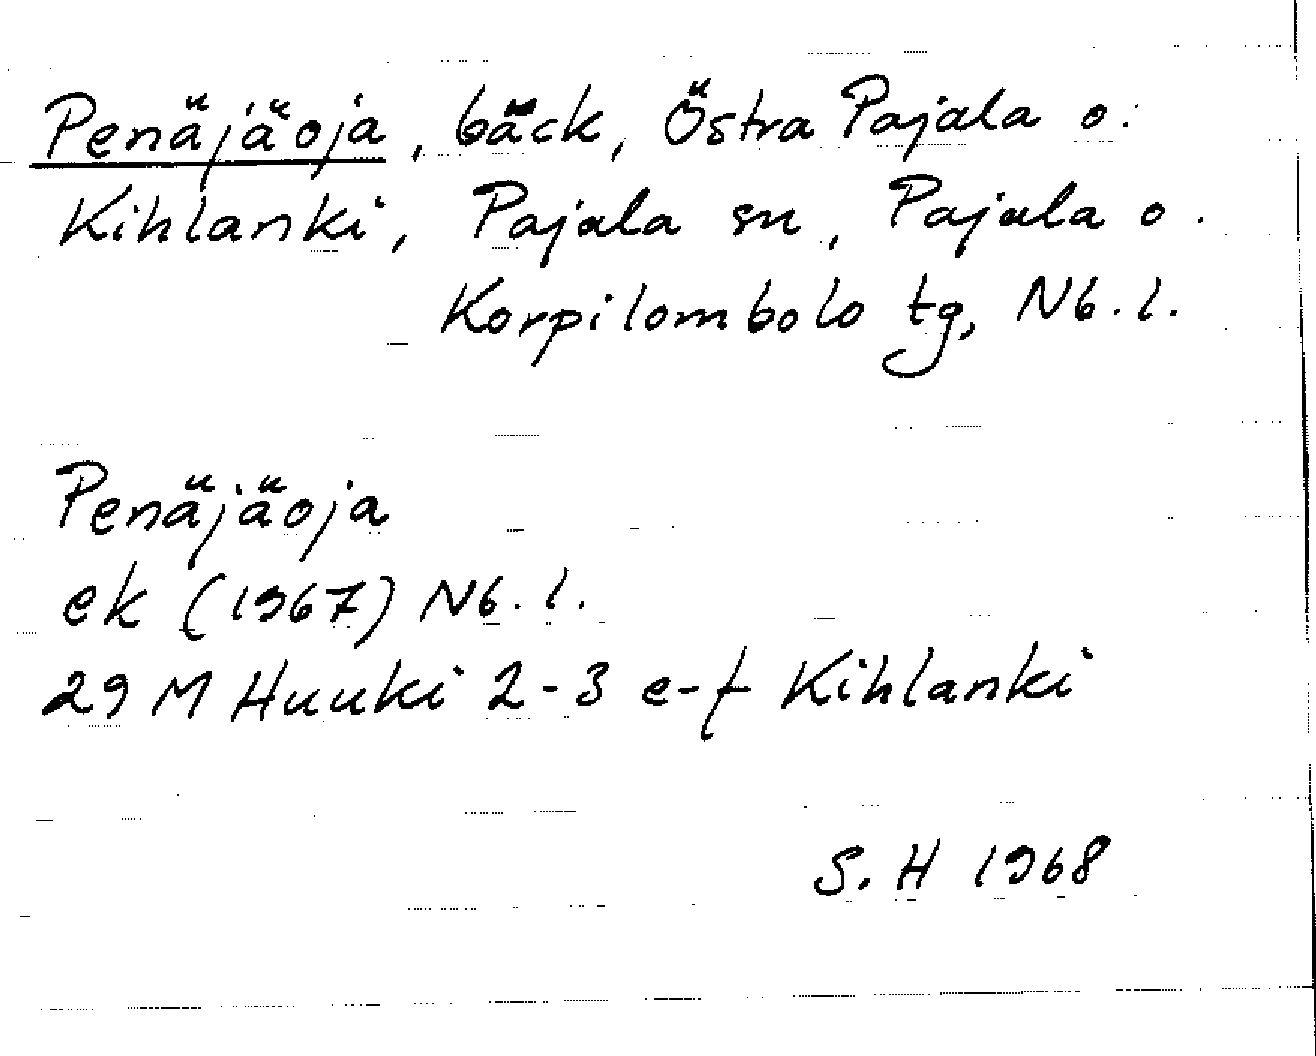 Penäjäoja, bäck, Östra Pajala o.
Kihlanki, Pajala sn, Pajala o.
Korpilombolo tg, Nb.l.
Penäjäoja
ek (1967) Nb.l.
29 M Huuki 2-3 e-f Kihlanki
S.H 1968